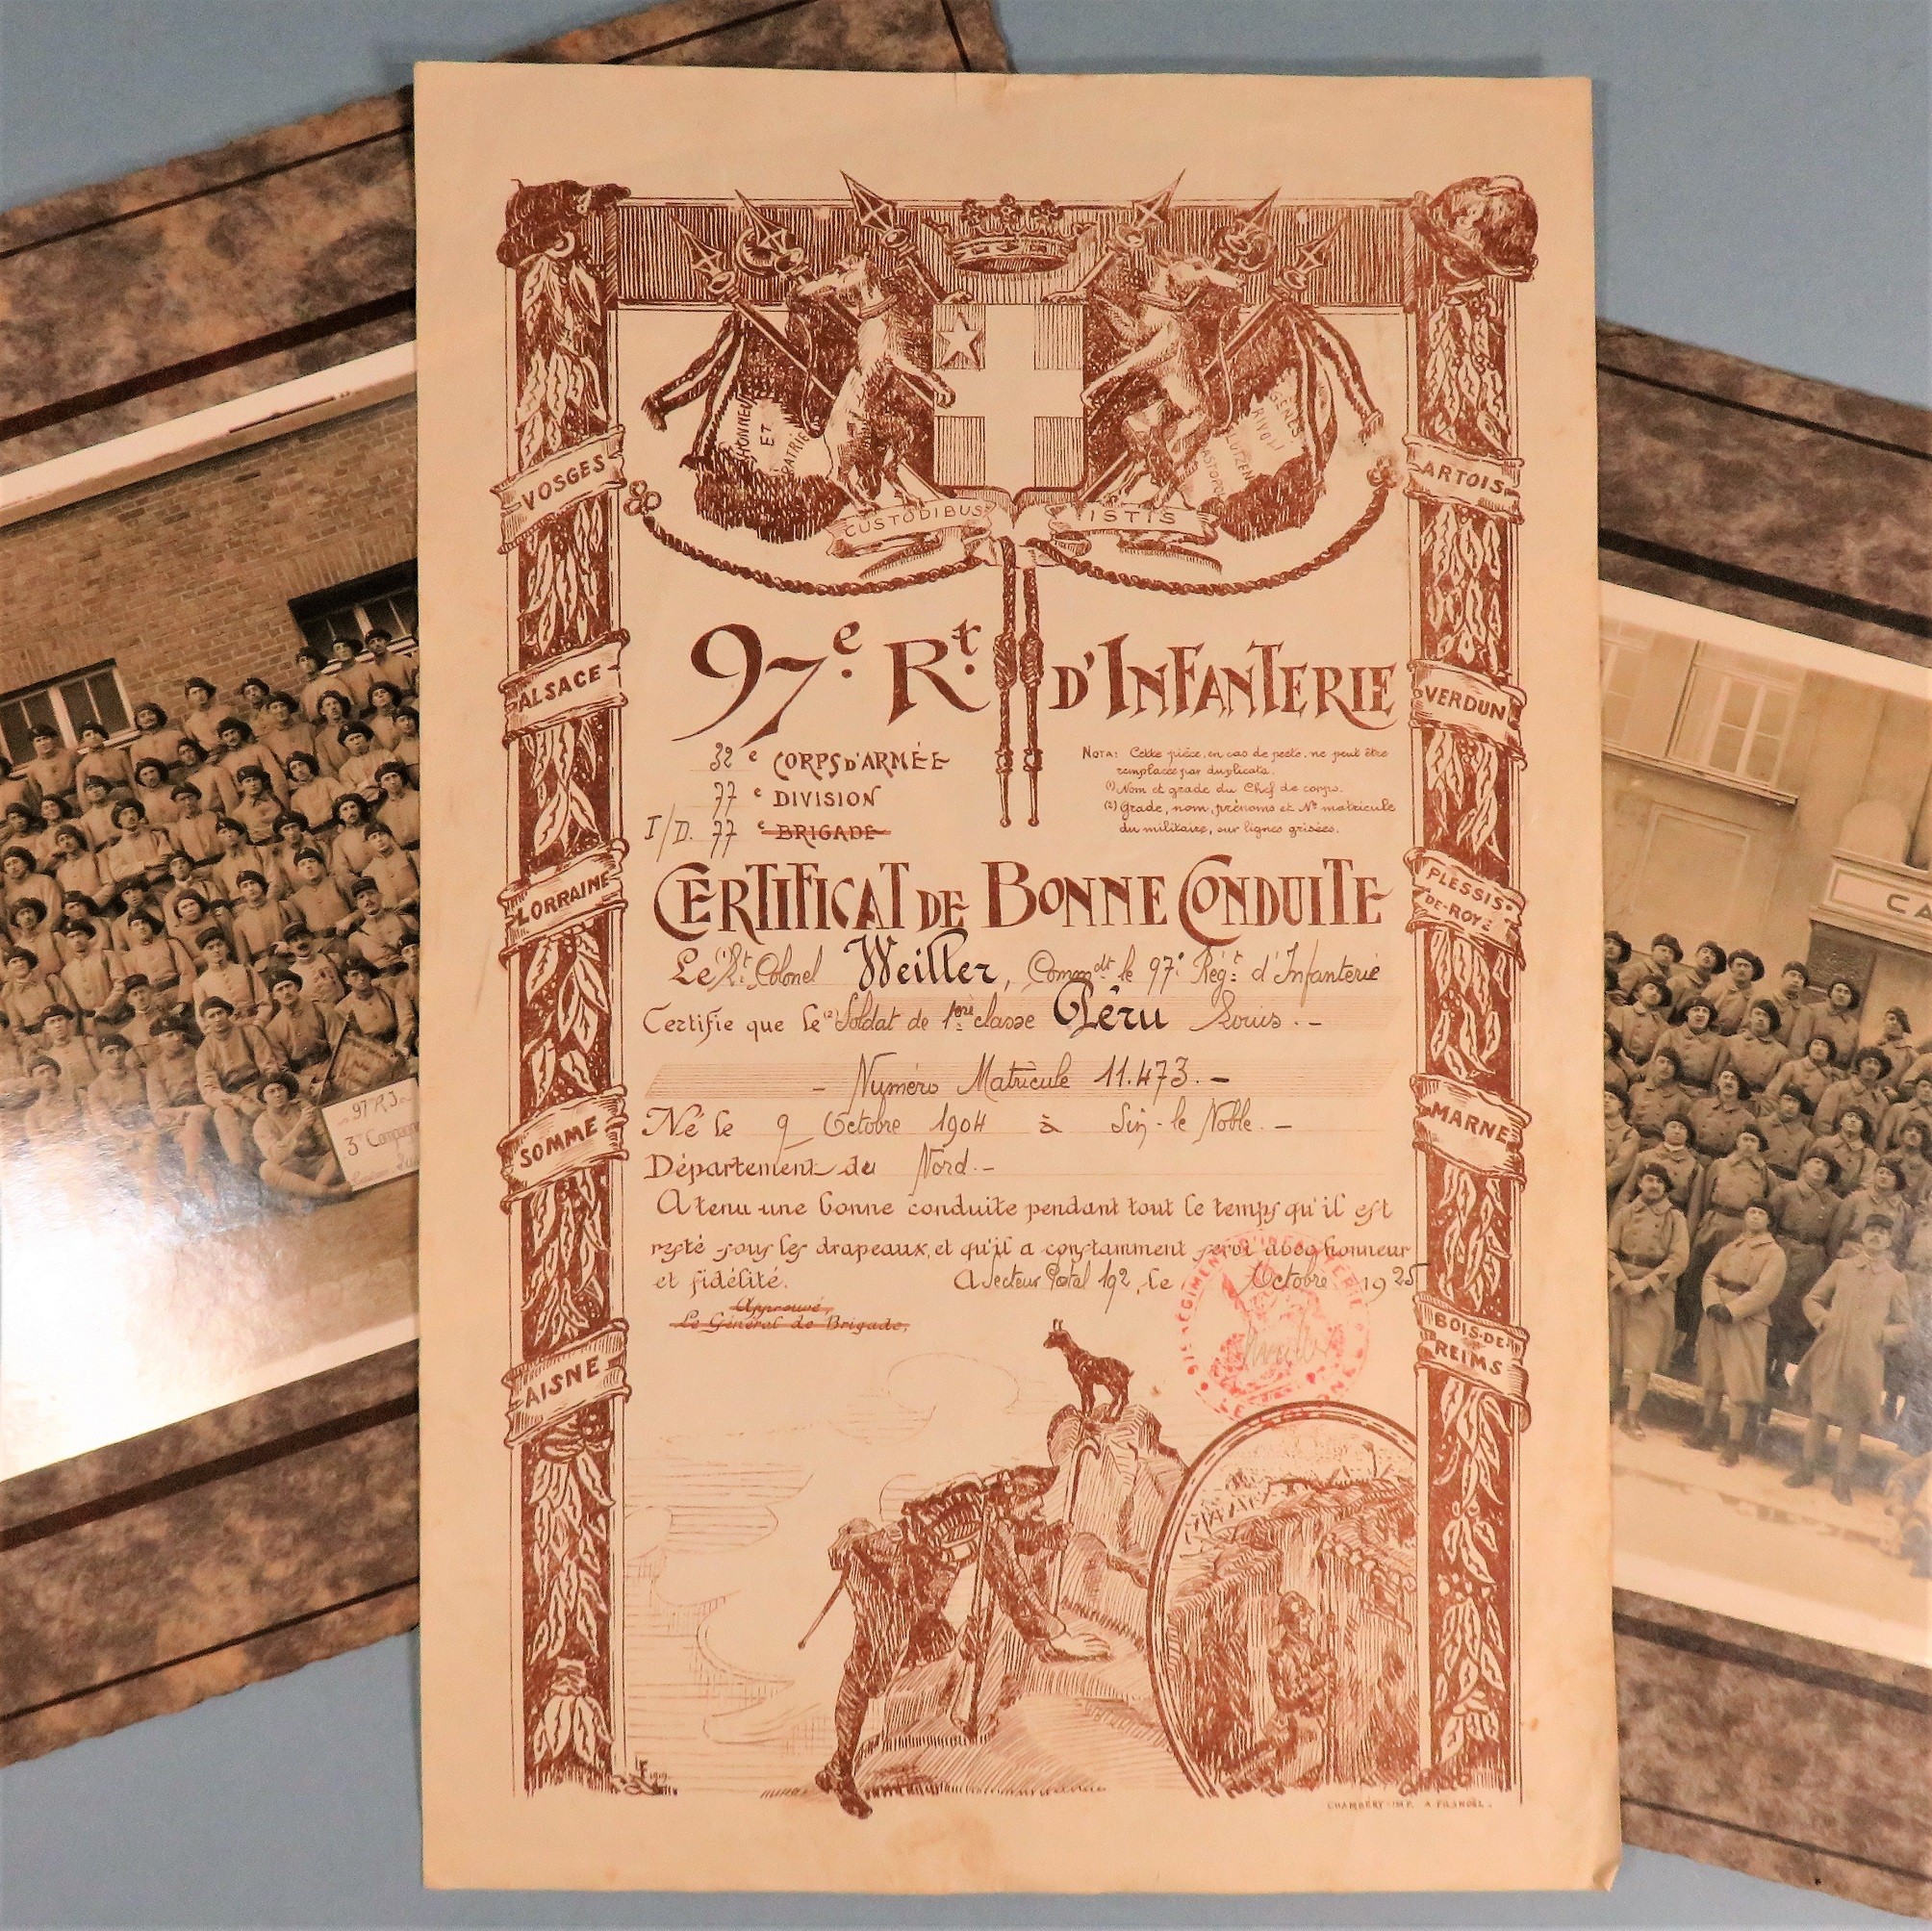 HONNEUR
ET
PATRIE
GÊNES
RIVOLI
LÜTZEN
CUSTODIBUS ISTIS
VOSGES
ALSACE
LORRAINE
SOMME
AISNE
ARTOIS
VERDUN
PLESSIS-
DE-ROYE
MARNE
BOIS-DE-
REIMS
97e Rt D'INFANTERIE
32e CORPS D'ARMÉE
77e DIVISION
I/D. 77e BRIGADE
NOTA: Cette pièce, en cas de perte, ne peut être
remplacée par duplicata.
(1) Nom et grade du Chef de corps.
(2) Grade, nom, prénoms et No matricule
du militaire, sur lignes grisées.
CERTIFICAT DE BONNE CONDUITE
Le (1) Lt Colonel Weiller, Commdt le 97e Régt d'Infanterie
Certifie que le (2) Soldat de 1ère classe Péru Louis. -
- Numéro Matricule 11.473. -
Né le 9 Octobre 1904 à Sin-le Noble. -
Département du Nord. -
A tenu une bonne conduite pendant tout le temps qu'il est
resté sous les drapeaux, et qu'il a constamment servi avec honneur
et fidélité. A Secteur Postal 192, le Octobre 1925
Approuvé,
Le Général de Brigade,
1919
CHAMBÉRY-IMP.
97e R.I.
3e Compagnie
CA